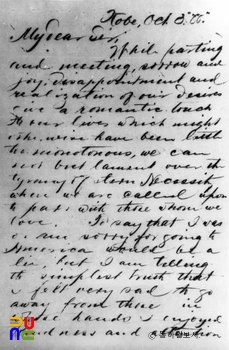 Kobe, Oct 3
My dear Sir,
While parting
and meeting, sorrow and
joy, disappointment and
realization of our desires
give a romantic touch
to our lives which might
otherwise have been little
monotonous, we can
not but lament over the
tyranny of stern Necessity
when we are called upon
to part with those whom we
love. To say that I was
sorry for going to
America would be a
lie but I am telling
the simplest truth that
I felt very sad to go
away from those in
whose hands I enjoyed
kindness and